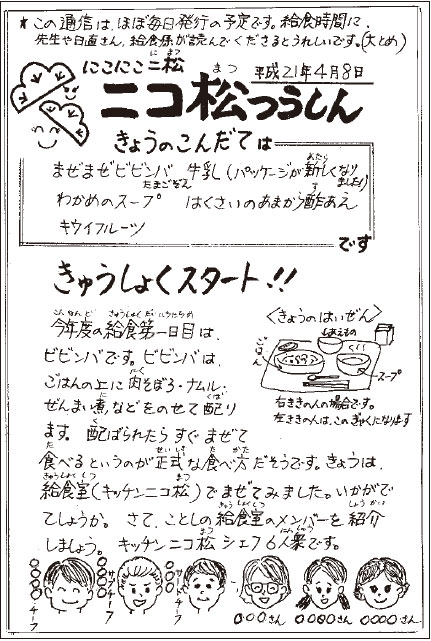 ★ この通信は、ほぼ毎日発行の予定です。給食時間に、
先生や日直さん、給食係が読んでくださるとうれしいです。(大とめ)
にこにこ二松
に まつ
平成21年4月8日
ニコ松つうしん
まつ
きょうのこんだては
まぜまぜビビンバ 牛乳(パッケージが新しくなりました!)
あたら
たまごぞん
わかめのスープ はくさいのあまから酢あえ
す
キウイフルーツ
です
きゅうしょくスタート!!
今年度の給食第一日目は、
ビビンバです。ビビンバは、
ごはんの上に肉そぼろ・ナムル・
にく
ぜんまい煮などをのせて配り
に くば
ます。配ばられたらすぐまぜて
食べるというのが正式な食べ方だそうです。きょうは、
た せいしき た かた
給食室(キッチンニコ松)でまぜてみました。いかがで
きゅうしょくしつ まつ
てしょうか。さて、ことしの給食室のメンバーを紹介
きゅうしょくしつ しょうかい
しましょう。キッチンニコ松シェフ6人衆です。
まつ にんしゅう
<きょうのはいぜん>
ごはん
スープ
右ききの人の場合です。
左ききの人は、このぎゃくになります
○○○チーフ
○○○サブチーフ
○○○サブチーフ
○○○さん
○○○○さん
○○○○さん